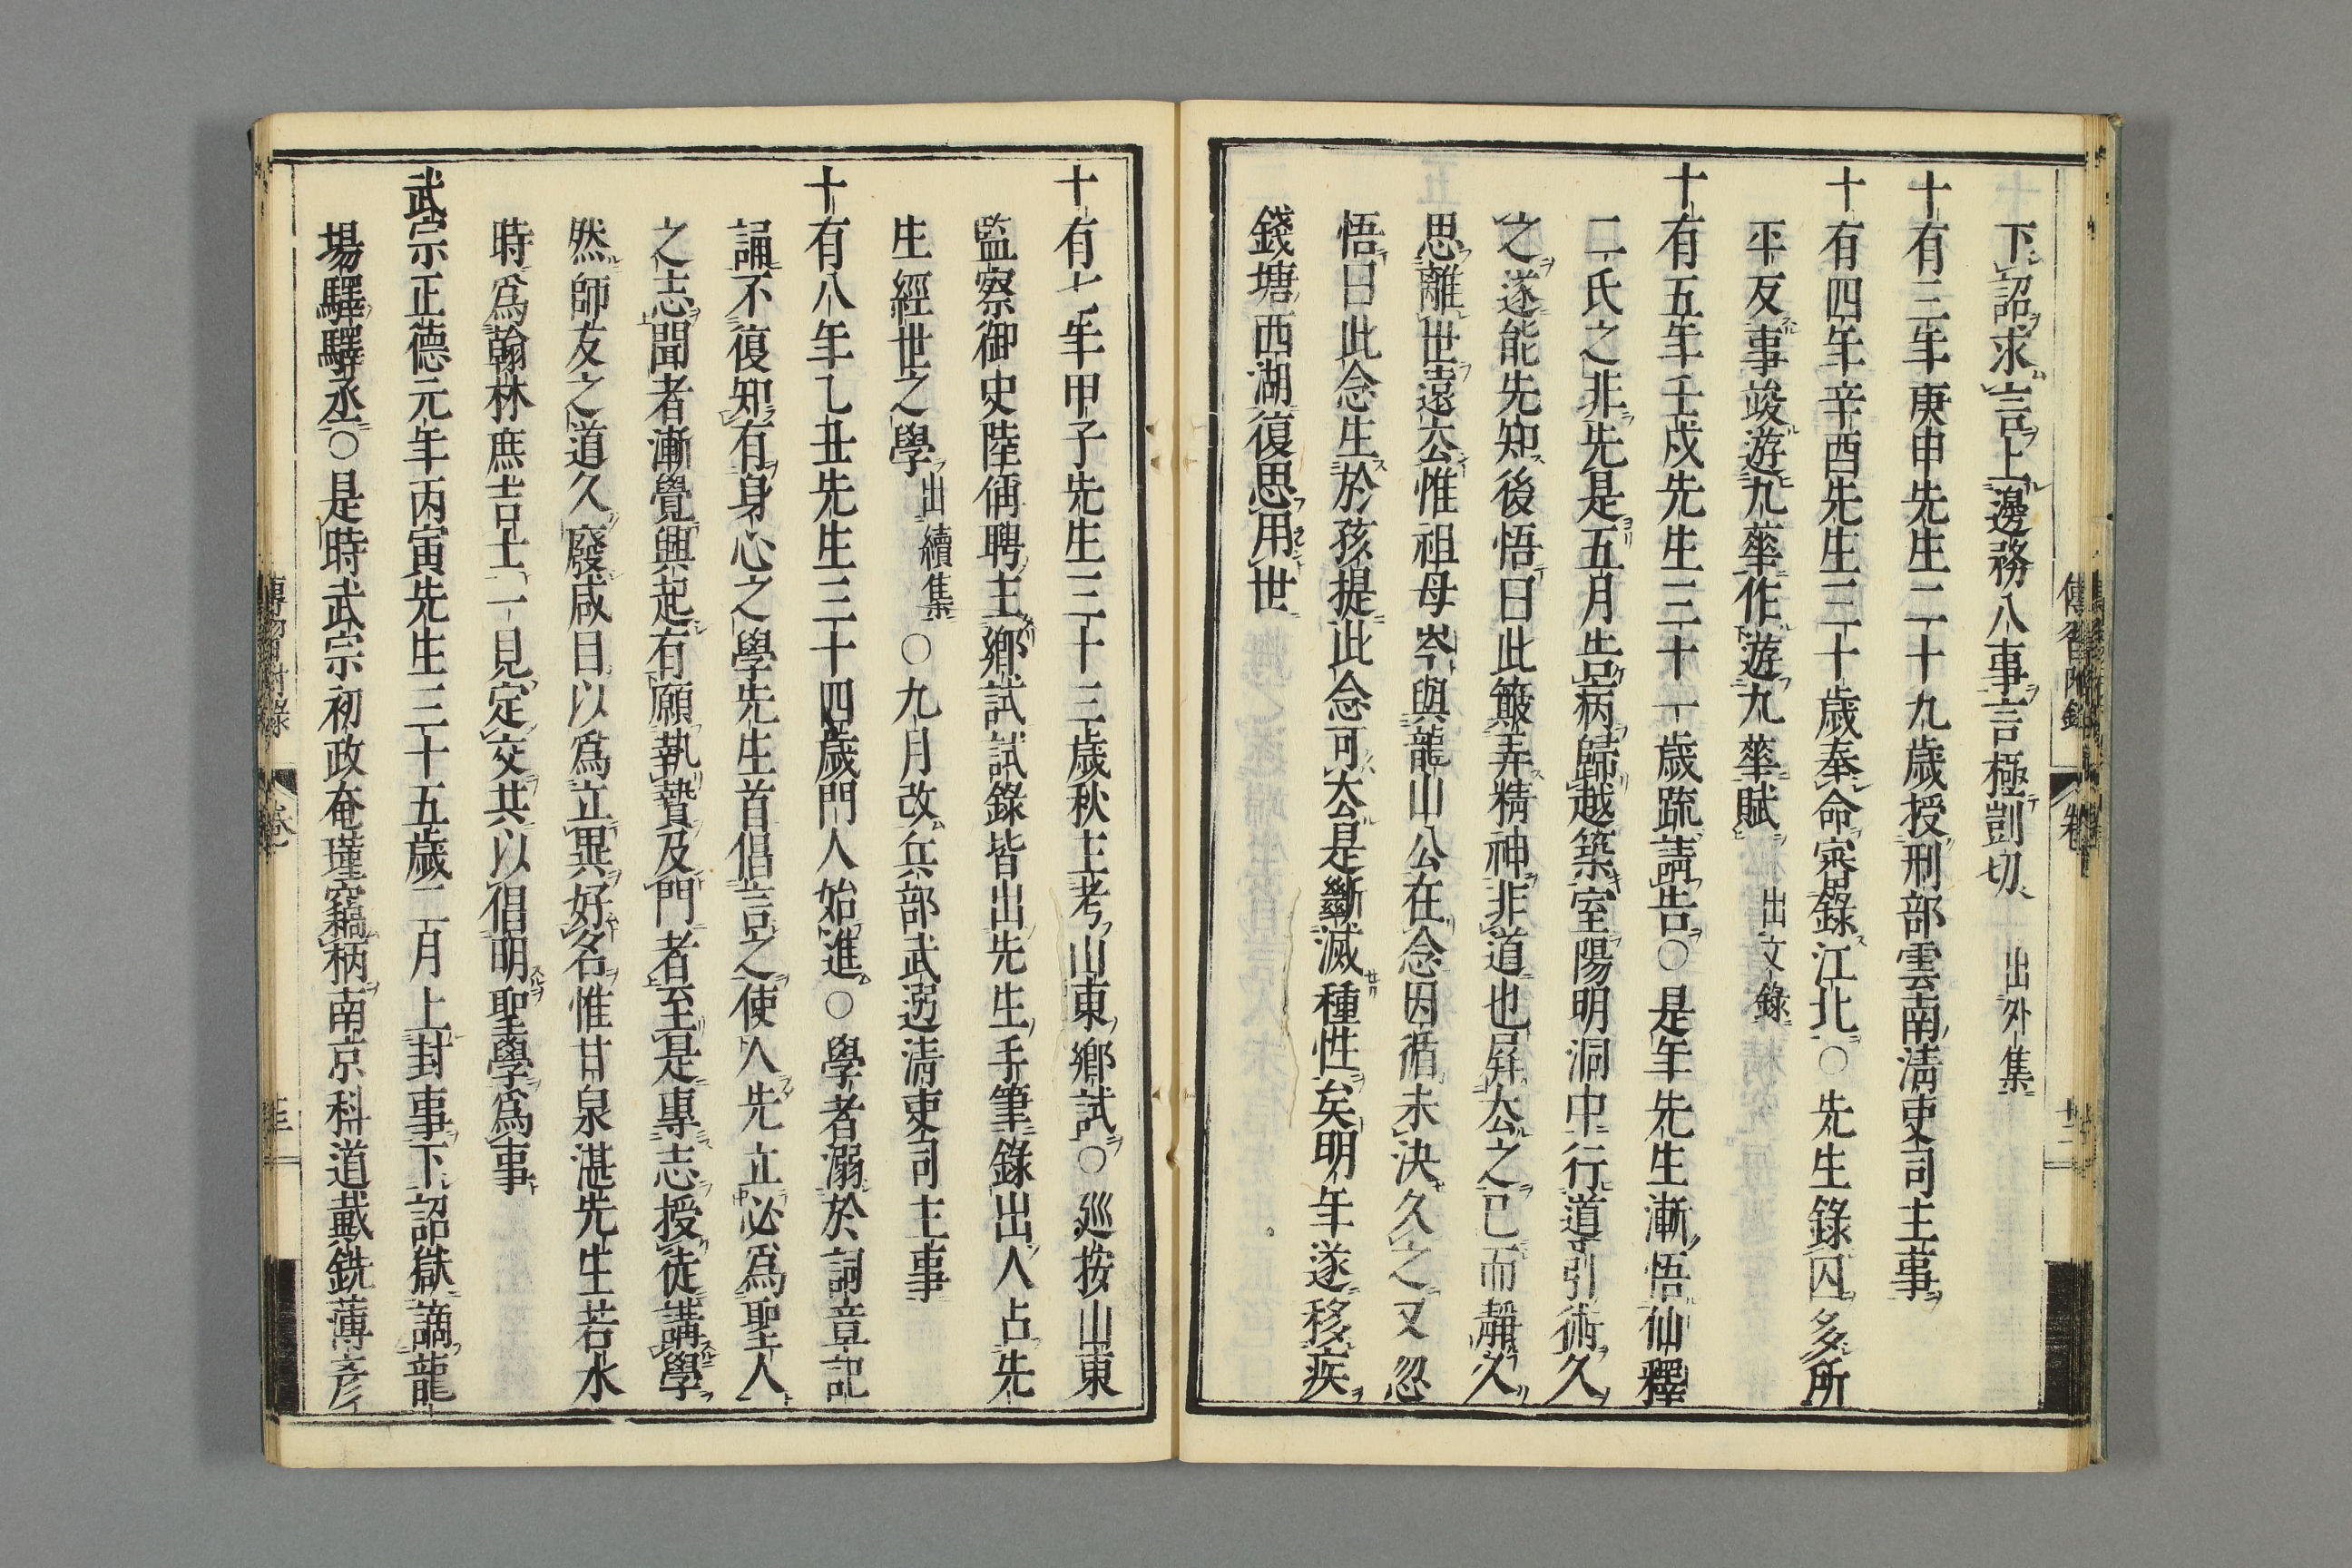 下詔求言上邊務八事言極剴切 出外集
十有三年庚申先生二十九歲授刑部雲南淸吏司主事
十有四年辛酉先生三十歲奉命審錄江北○先生錄囚多所
平反事竣遊九華作遊九華賦 出文錄
十有五年壬戌先生三十一歲疏請告○是年先生漸悟仙釋
二氏之非先是五月告病歸越築室陽明洞中行道引術久
之遂能先知後悟曰此簸弄精神非道也屛去之已而靜久
思離世遠去惟祖母岑與龍山公在念因循未決久之又忽
悟曰此念生於孩提此念可去是斷滅種性矣明年遂移疾
錢塘西湖復思用世
十有七年甲子先生三十三歲秋主考山東鄉試○巡按山東
監察御史陸偁聘主鄉試試錄皆出先生手筆錄出人占先
生經世之學 出續集 ○九月改兵部武選淸吏司主事
十有八年乙丑先生三十四歲門人始進○學者溺於詞章記
誦不復知有身心之學先生首倡言之使人先立必爲聖人
之志聞者漸覺興起有願執贄及門者至是專志授徒講學
然師友之道久廢咸目以爲立異好名惟甘泉湛先生若水
時爲翰林庶吉士一見定交共以倡明聖學爲事
武宗正德元年丙寅先生三十五歲二月上封事下詔獄謫龍
場驛驛丞○是時武宗初政奄瑾竊柄南京科道戴銑薄彥
傳習附錄 卷
傳習附錄 卷